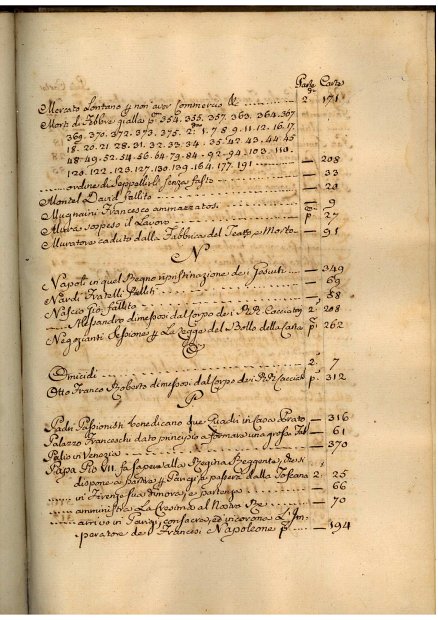 Parte Carte
Mercato Lontano p non aver Commercio & 2 171
Morti di Febbre gialla pa 354. 355. 357. 363. 364. 367
369. 370. 372. 373. 375. 2da 1. 7. 8. 9. 11. 12. 16. 17
18. 20. 21. 28. 31. 32. 33. 34. 35. 42. 43. 44. 45
48. 49. 52. 54. 56. 64. 79. 84. 92. 94. 103. 110.
120. 122. 123. 127. 130. 139. 164. 177. 191 — 208
ordine di Seppellirli senza fasto — 33
Montel David fallito — 20
Mugnaini Francesco ammazzatosi — 9
Mura sospeso il Lavoro p. 27
Muratore caduto dalla Fabbrica del Teatro, e Morto — 91
N
Napoli in quel Regno ripristinazione dei Gesuiti — 349
Nardi Fratelli falliti — 69
Nascio Gio. fallito — 58
Alessandro dimessosi dal Corpo dei RR. Cacciatori 2 208
Negozianti Sessione p La Legge del Bollo della Carta p. 262
O
Omicidi 2 7
Otto Franco Roberto dimessosi dal Corpo dei RR. Cacciat p. 312
P
Padri Passionisti benedicano due Quadri in Casa Prato — 316
Palazzo Franceschi dato principio a formare una grossa — 61
Palio in Venezia — 370
Papa Pio VII. fa sapere alla Regina Reggente, che si
dispone a partire p Parigi, e passerà dalla Toscana 2 25
in Firenze sua dimora, e partenza — 66
amministra La Cresima al Nostro Re — 70
arrivo in Parigi, consacra, ed incorona L'Im-
peratore dei Francesi Napoleone po — 194